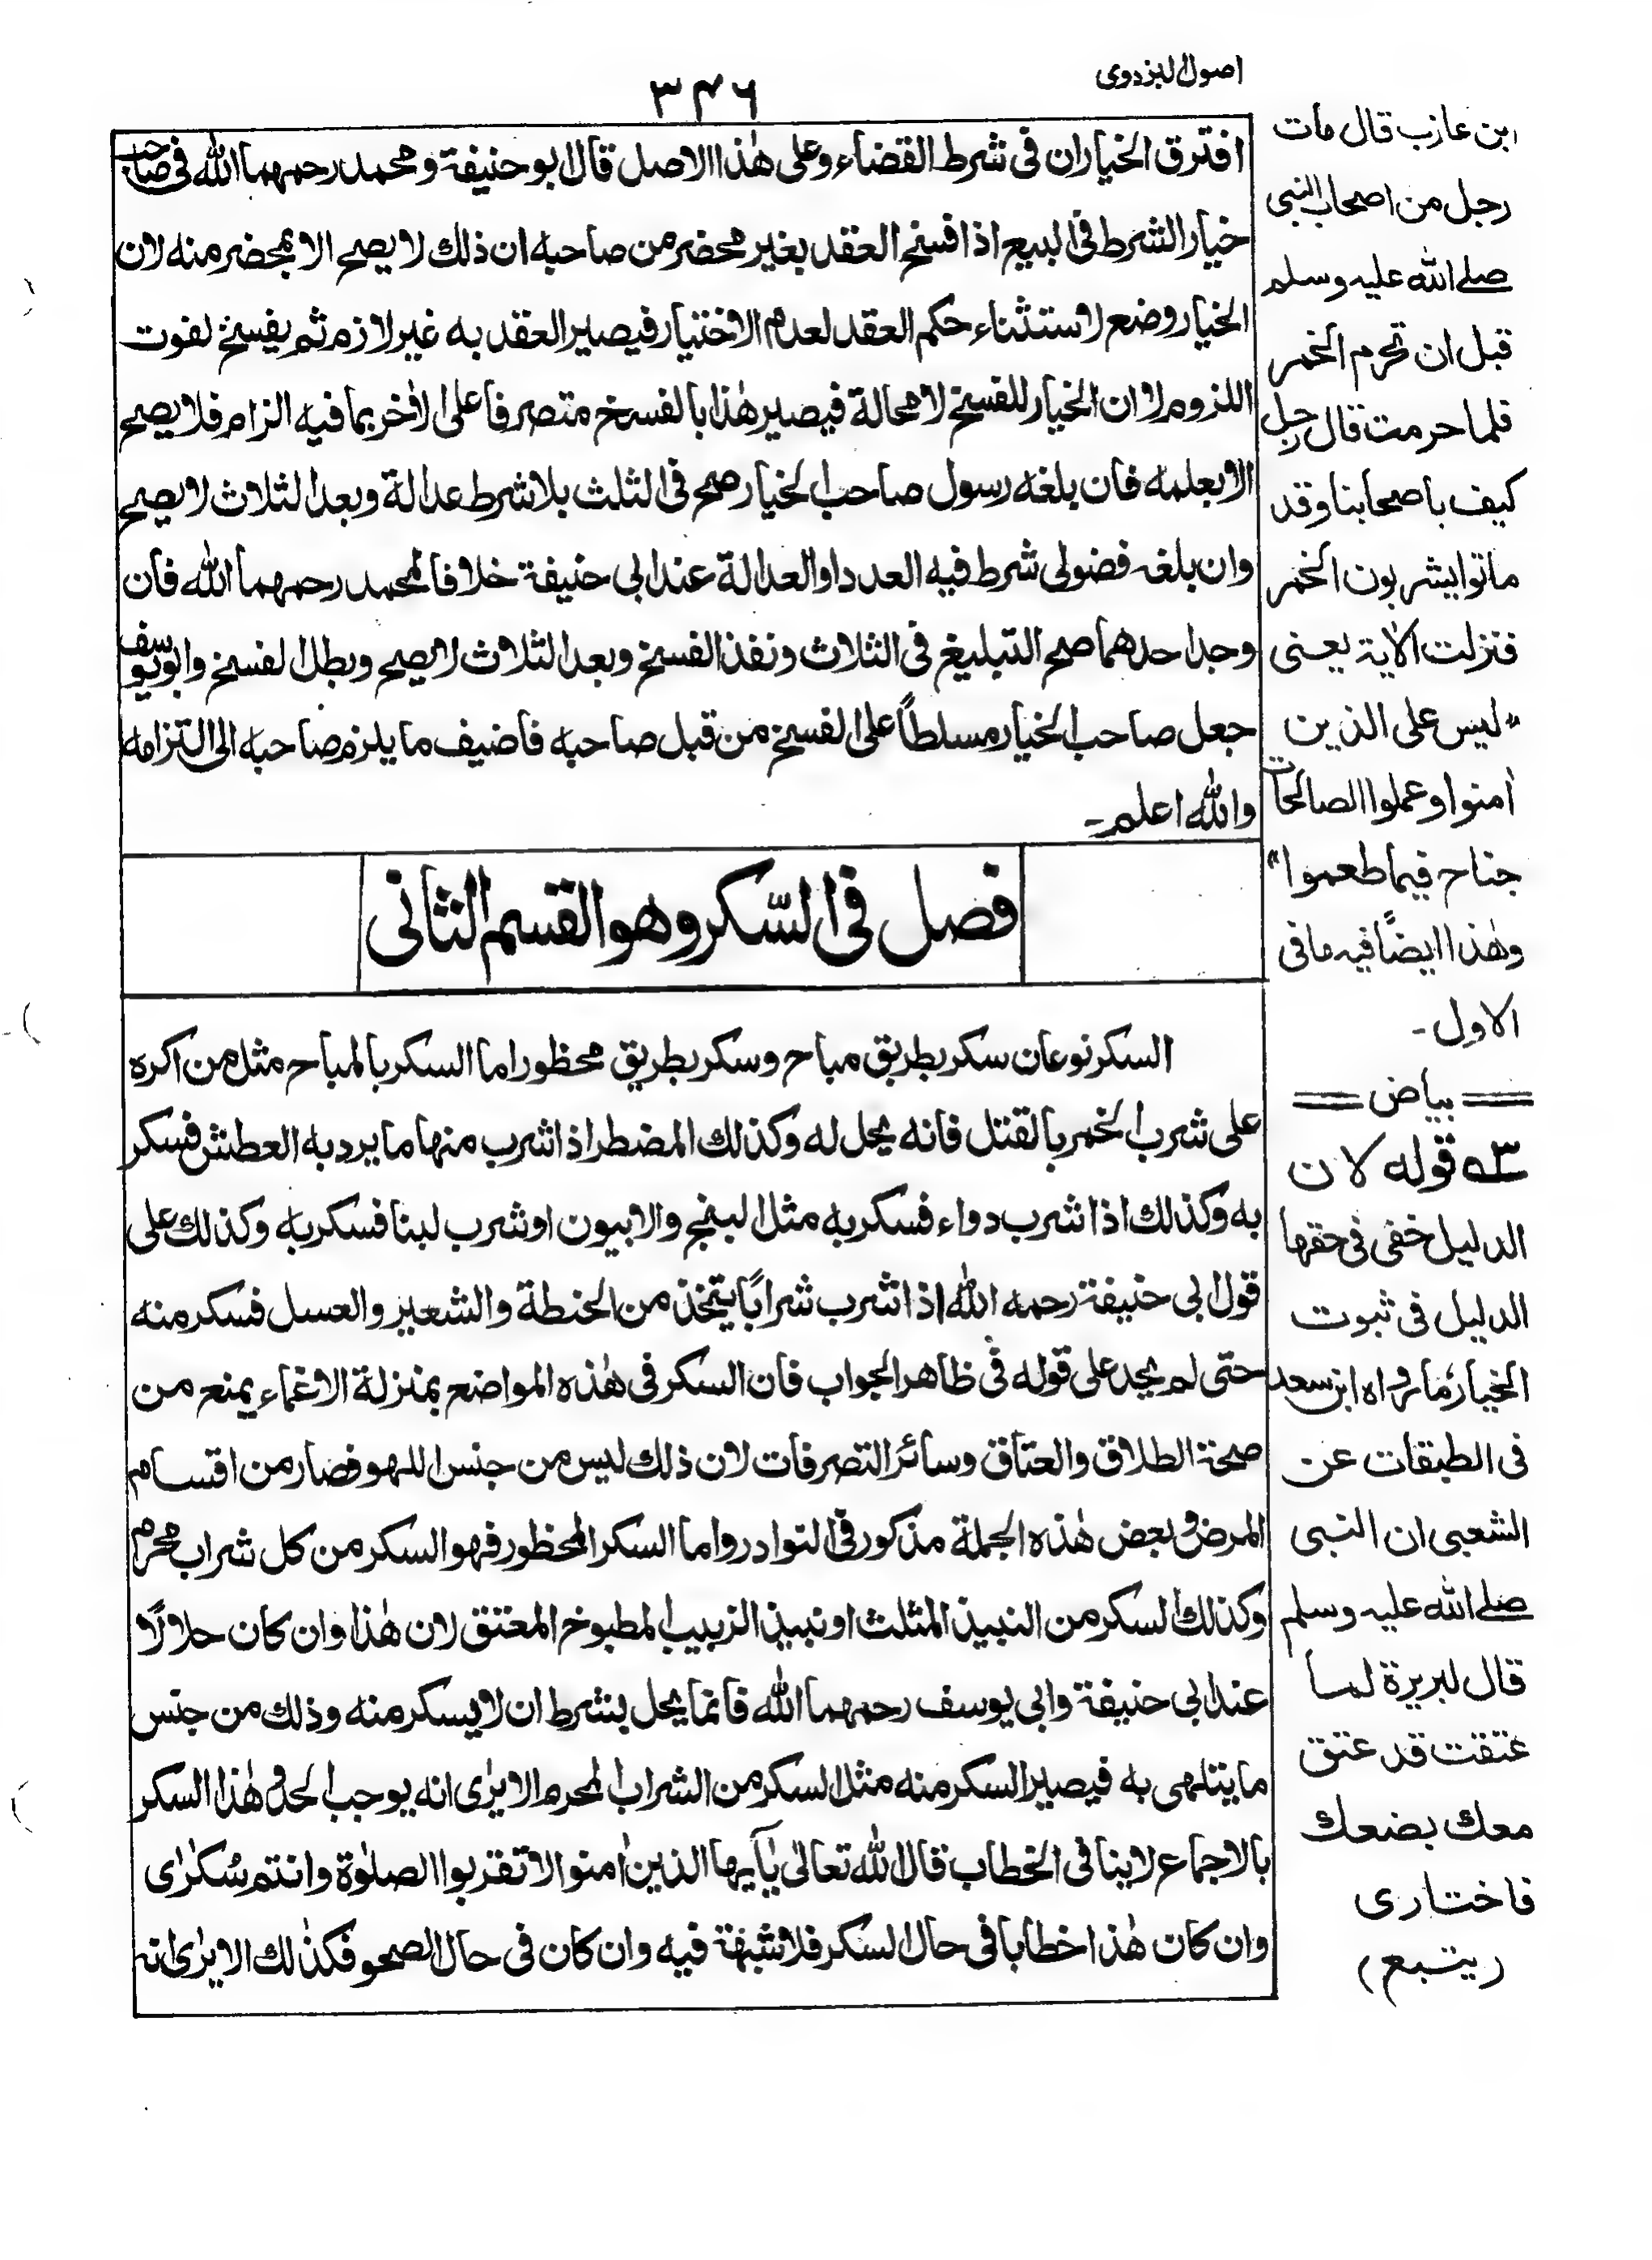 اصول البزدوی
۳۴۶
افترق الخیاران فی شرط القضاء وعلی هٰذا الاصل قال ابو حنیفة ومحمد رحمهما الله فی صاحب
خیار الشرط فی البیع اذا فسخ العقد بغیر محضر من صاحبه ان ذلك لا یصح الا بمحضر منه لان
الخیار وضع لاستثناء حکم العقد لعدم الاختیار فیصیر العقد به غیر لازم ثم یفسخ لفوت
اللزوم لا ان الخیار للفسخ لا محالة فیصیر هٰذا بالفسخ متصرفا علی الاٰخر بما فیه الزام فلا یصح
الا بعلمه فان بلغه رسول صاحب الخیار صح فی الثلث بلا شرط عدالة وبعد الثلاث لا یصح
وان بلغه فضولی شرط فیه العدد او العدالة عند ابی حنیفة خلافا لمحمد رحمهما الله فان
وجد احدهما صح التبلیغ فی الثلاث ونفذ الفسخ وبعد الثلاث لا یصح وبطل الفسخ وابو یوسف
جعل صاحب الخیار مسلطاً علی الفسخ من قبل صاحبه فاضیف ما یلزم صاحبه الی التزامه
والله اعلم ۔
فصل فی السّکر وهو القسم الثانی
السکر نوعان سکر بطریق مباح وسکر بطریق محظور اما السکر بالمباح مثل من اکره
علی شرب الخمر بالقتل فانه یحل له وکذلك المضطر اذا شرب منها ما یرد به العطش فسکر
به وکذلك اذا شرب دواء فسکر به مثل البنج والابیون او شرب لبنا فسکر به وکذلك علی
قول ابی حنیفة رحمه الله اذا شرب شراباً یتخذ من الحنطة والشعیر والعسل فسکر منه
حتی لم یحد علی قوله فی ظاهر الجواب فان السکر فی هٰذه المواضع بمنزلة الاغماء یمنع من
صحة الطلاق والعتاق وسائر التصرفات لان ذلك لیس من جنس اللهو فصار من اقسام
المرض وبعض هٰذه الجملة مذکور فی النوادر واما السکر المحظور فهو السکر من کل شراب محرم
وکذلك السکر من النبیذ المثلث او نبیذ الزبیب المطبوخ المعتق لان هٰذا وان کان حلالاً
عند ابی حنیفة وابی یوسف رحمهما الله فانما یحل بشرط ان لا یسکر منه وذلك من جنس
ما یتلهی به فیصیر السکر منه مثل السکر من الشراب المحرم الا یرٰی انه یوجب الحد وهٰذا السکر
بالاجماع لا ینافی الخطاب قال الله تعالیٰ یٰاَیها الذین اٰمنوا لا تقربوا الصلوٰة وانتم سُکٰرٰی
وان کان هٰذا خطابا فی حال السکر فلا شبهة فیه وان کان فی حال الصحو فکذٰلك الا یرٰی انه
ابن عازب قال مات
رجل من اصحاب النبی
صلی الله علیه وسلم
قبل ان تحرم الخمر
فلما حرمت قال رجل
کیف باصحابنا وقد
ماتوا یشربون الخمر
فنزلت الاٰیة یعنی
"لیس علی الذین
اٰمنوا وعملوا الصالحات
جناح فیما طعموا"
وهٰذا ایضاً فیه ما فی
الاول ۔
== بیاض ==
۳ه قوله لان
الدلیل خفی فی حقها
الدلیل فی ثبوت
الخیار ما رواه ابن سعد
فی الطبقات عن
الشعبی ان النبی
صلی الله علیه وسلم
قال لبریرة لما
عتقت قد عتق
معك بضعك
فاختاری
(یتبع)